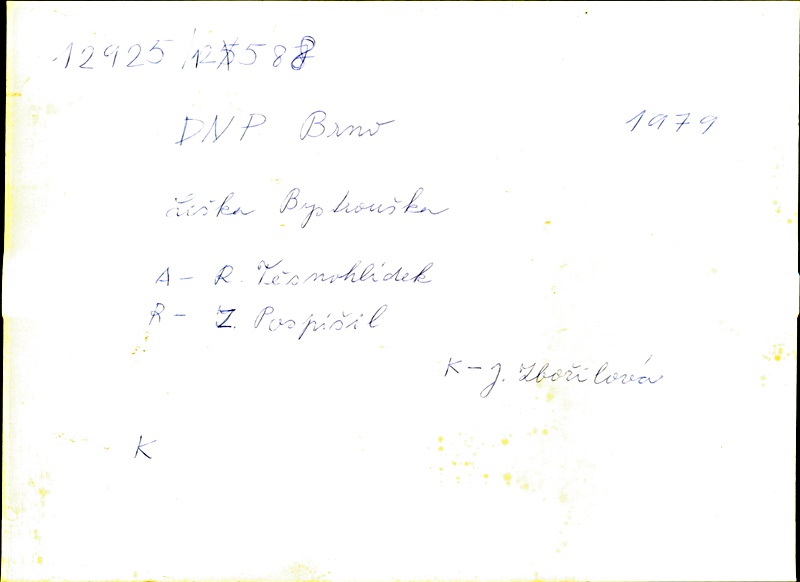 12925
DNP Brno 1979
Liška Bystrouška
A - R. Těsnohlídek
R - Z. Pospíšil
K - J. Zbořilová
K